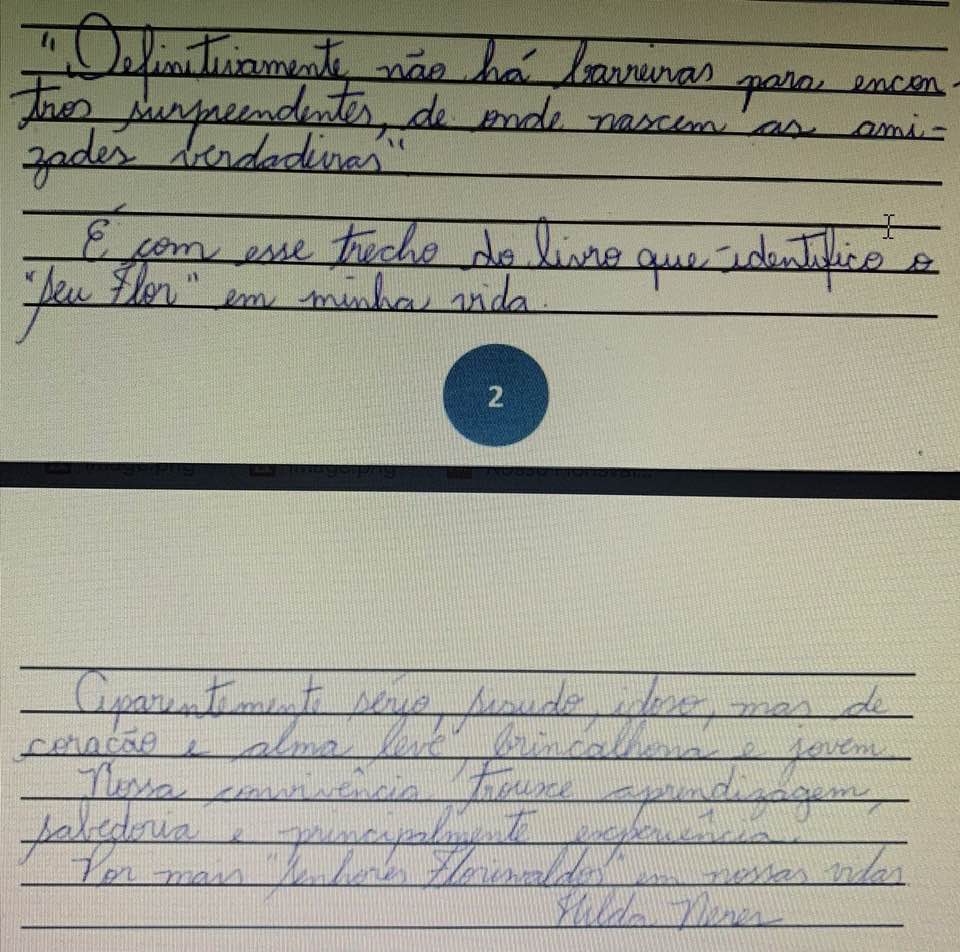 "Definitivamente não há barreiras para encon-
tros surpreendentes, de onde nascem as ami-
zades verdadeiras"
É com esse trecho do livro que identifico o
"seu Flor" em minha vida.
2
image.png image.png
Aparentemente sério, sisudo, idoso, mas de
coração e alma leve, brincalhona e jovem.
Nossa convivência trouxe aprendizagem,
sabedoria e principalmente experiência.
Por mais "senhores Florisvaldos" em nossas vidas
Hilda Neres